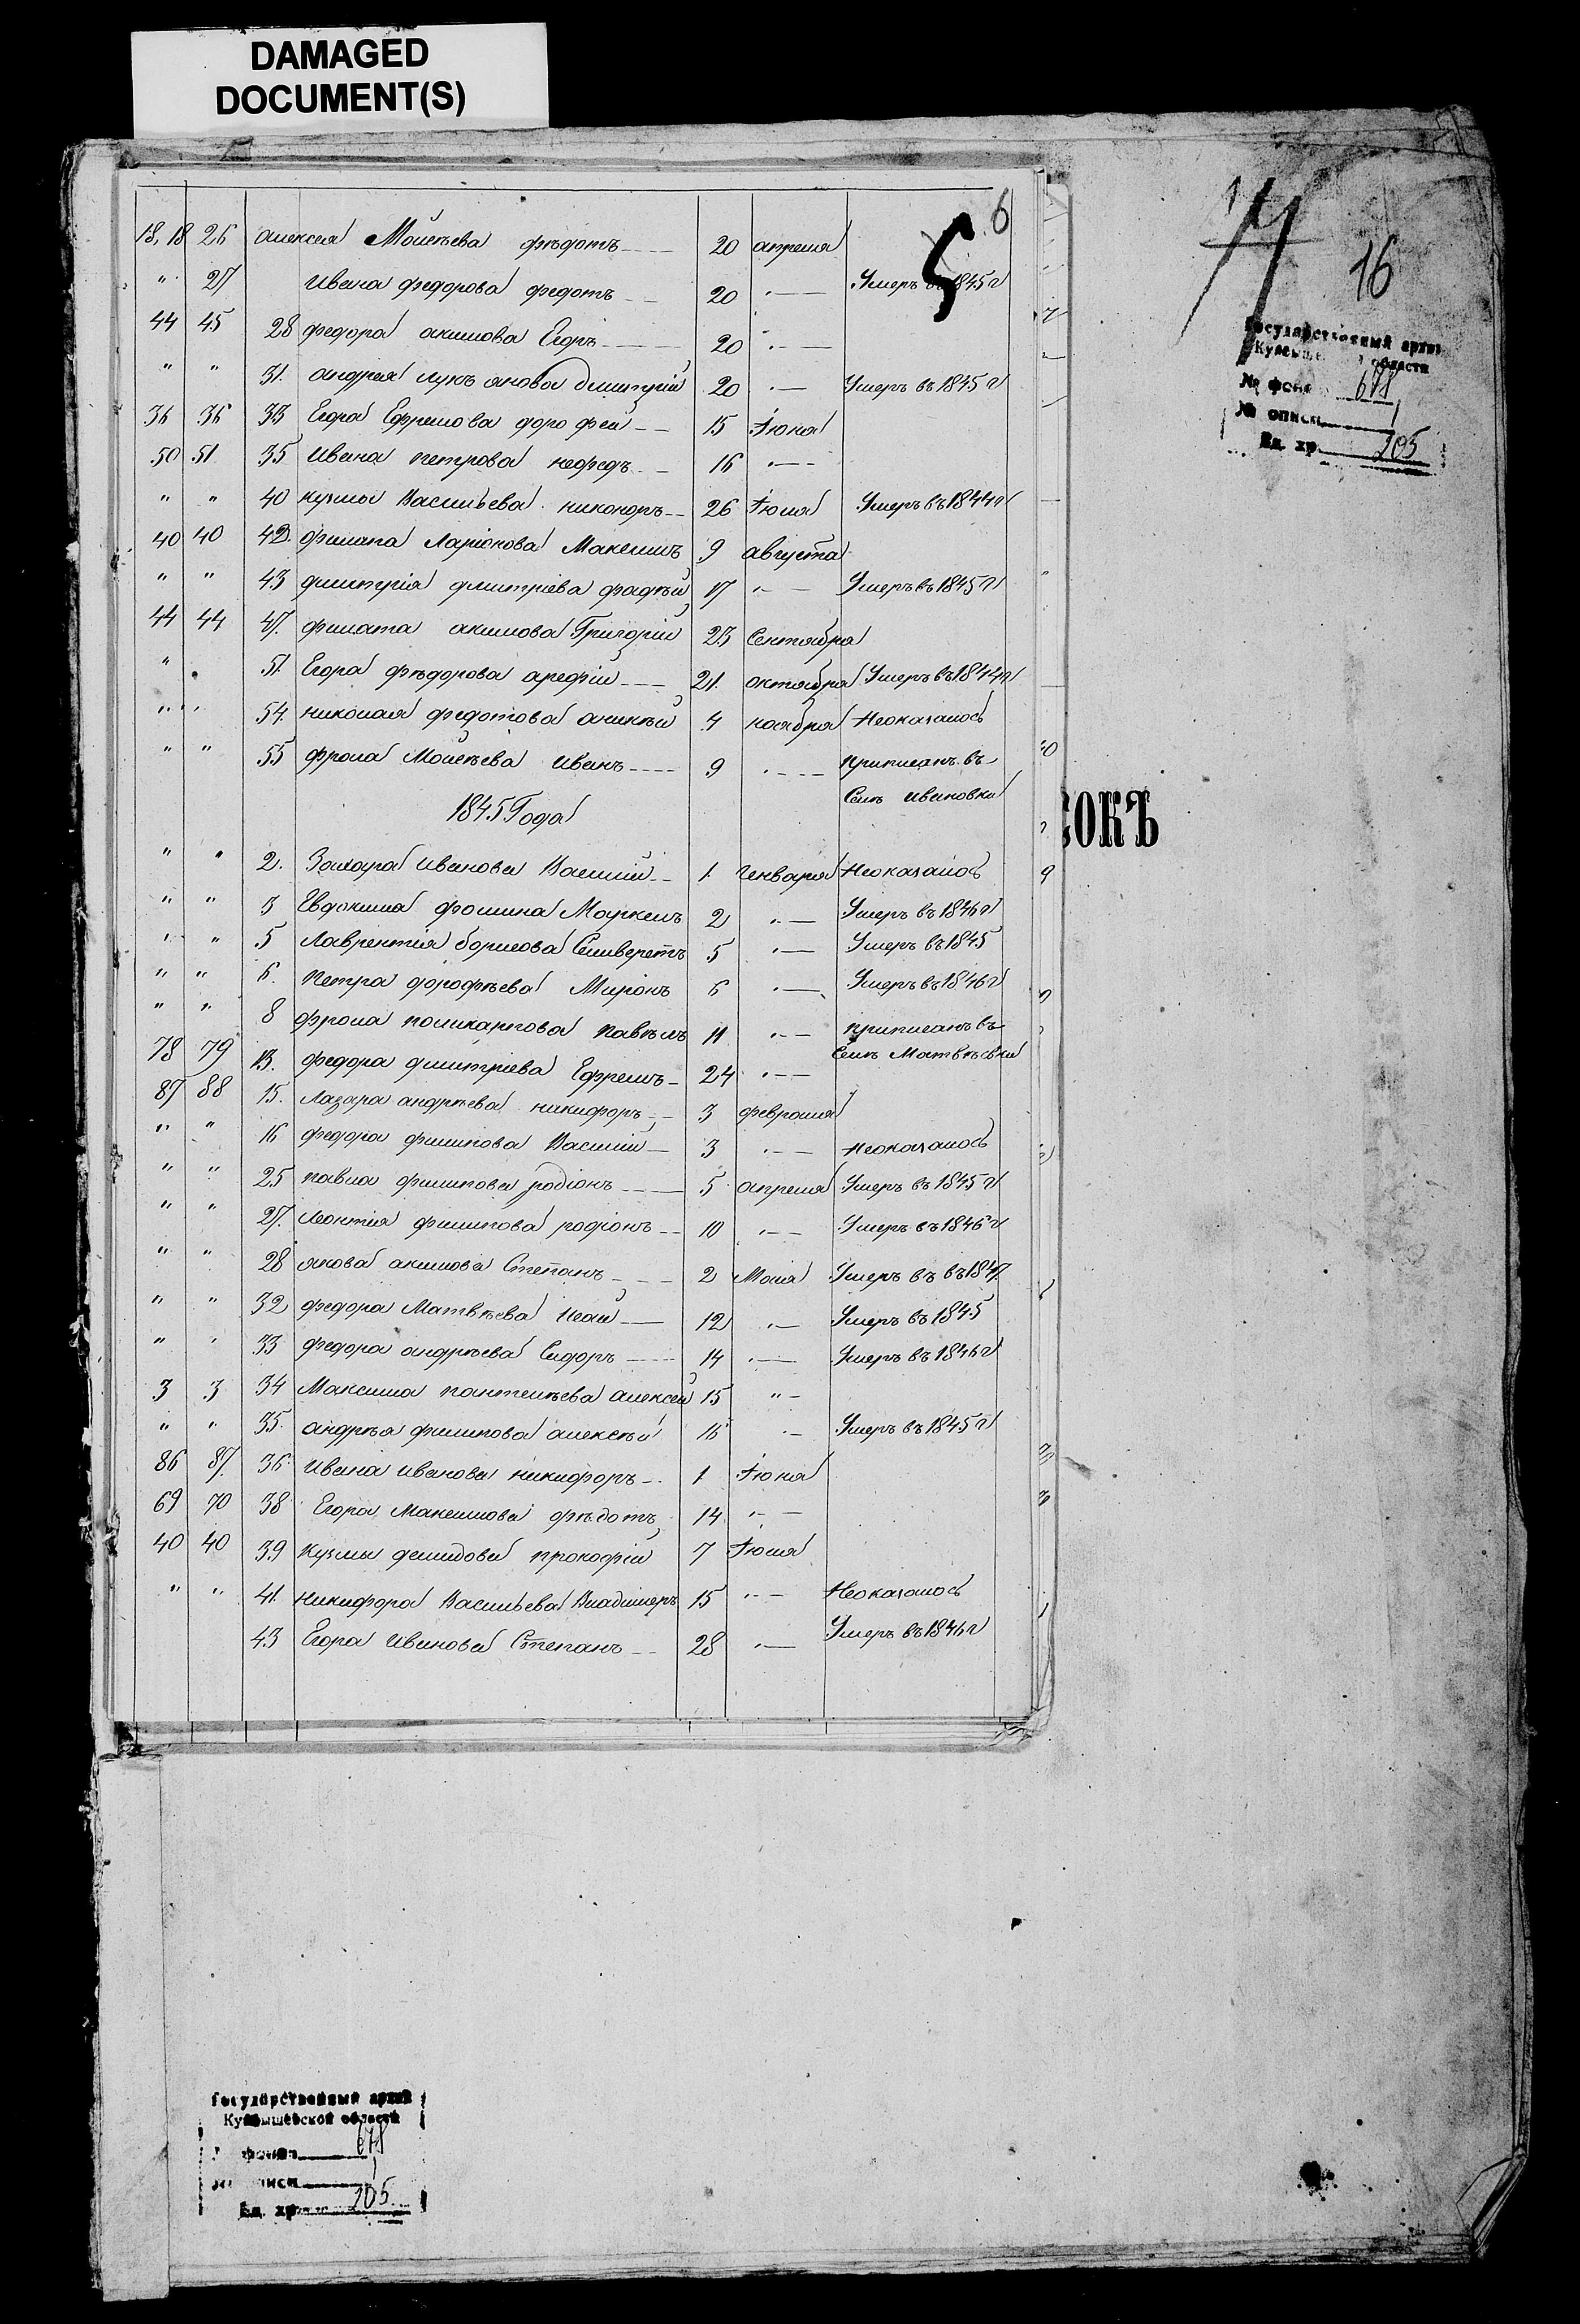 DAMAGED
DOCUMENT(S)
6
5
18. 18 26 алексея Мойсѣева фѣдотъ 20 апреля
" 27 Ивана федорова федотъ 20 " Умеръ въ 1845 г
44 45 28 федора акимова Егоръ 20 "
" " 31. андрея лукъянова дмитрій 20 " Умеръ въ 1845 г
36 36 33 Егора Ефремова дорофей 15 Іюня
50 51 35 Ивана петрова нефедъ 16 "
" " 40 кузмы Васильева никоноръ 26 Іюля Умеръ въ 1844 г
40 40 42. филата Ларіонова Максимъ 9 августа
" " 43 дмитрія дмитріева фадѣй 17 " Умеръ въ 1845 г
44 44 47. филата акимова Григорій 23 Сентября
" " 51 Егора фѣдорова арефій 21. октября Умеръ въ 1844 г
" " 54. николая федотова аникѣй 4 ноября Неоказалось
" " 55 фрола Мойсѣева Иванъ 9 " приписанъ въ
Селѣ Ивановки
1845 Года
" " 2. Захара Иванова Василій 1. Генваря Неоказалось
" " 3 Евдокима фомина Моркелъ 2 " Умеръ въ 1846 г
" " 5 Лаврентія борисова Селиверстъ 5 " Умеръ въ 1845
" " 6. петра дорофѣева Миронъ 6 " Умеръ въ 1846 г
" " 8 фрола поликарпова павѣлъ 11 " приписанъ въ
Селѣ Матвѣевки
78 79 13. федора дмитріева Ефремъ 24 "
87 88 15. Лазара андрѣева никифоръ 3 февраля
" " 16 федора филипова Василій 3 " Неоказалось
" " 25 павла филипова родіонъ 5 апреля Умеръ въ 1845 г
" " 27. Леонтія филипова родіонъ 10 " Умеръ въ 1846 г
" " 28 якова акимова Степанъ 2 Маія Умеръ въ въ 1847.
" " 32 федора Матвѣева Исай 12 " Умеръ въ 1845
" " 33 федора андрѣева Сидоръ 14 " Умеръ въ 1846 г
3 3 34 Максима пантелѣева алексей 15 "
" " 35. андрѣя филипова алексѣй 16 " Умеръ въ 1845 г
86 87. 36. Ивана Иванова никифоръ 1 Іюня
69 70 38 Егора Максимова фѣдотъ 14 "
40 40 39 Кузмы демидова прокофій 7 Іюля
" " 41. никифора Васильева Владимеръ 15 " Неоказалось
43 Егора Иванова Степанъ 28 " Умеръ въ 1846 г
16
Государственный архив
Куйбышевской области
№ фонда 678
№ описи 1
Ед. хр. 205
СОКЪ
Государственный архив
Куйбышевской области
№ фонда 678
№ описи 1
Ед. хр. 205